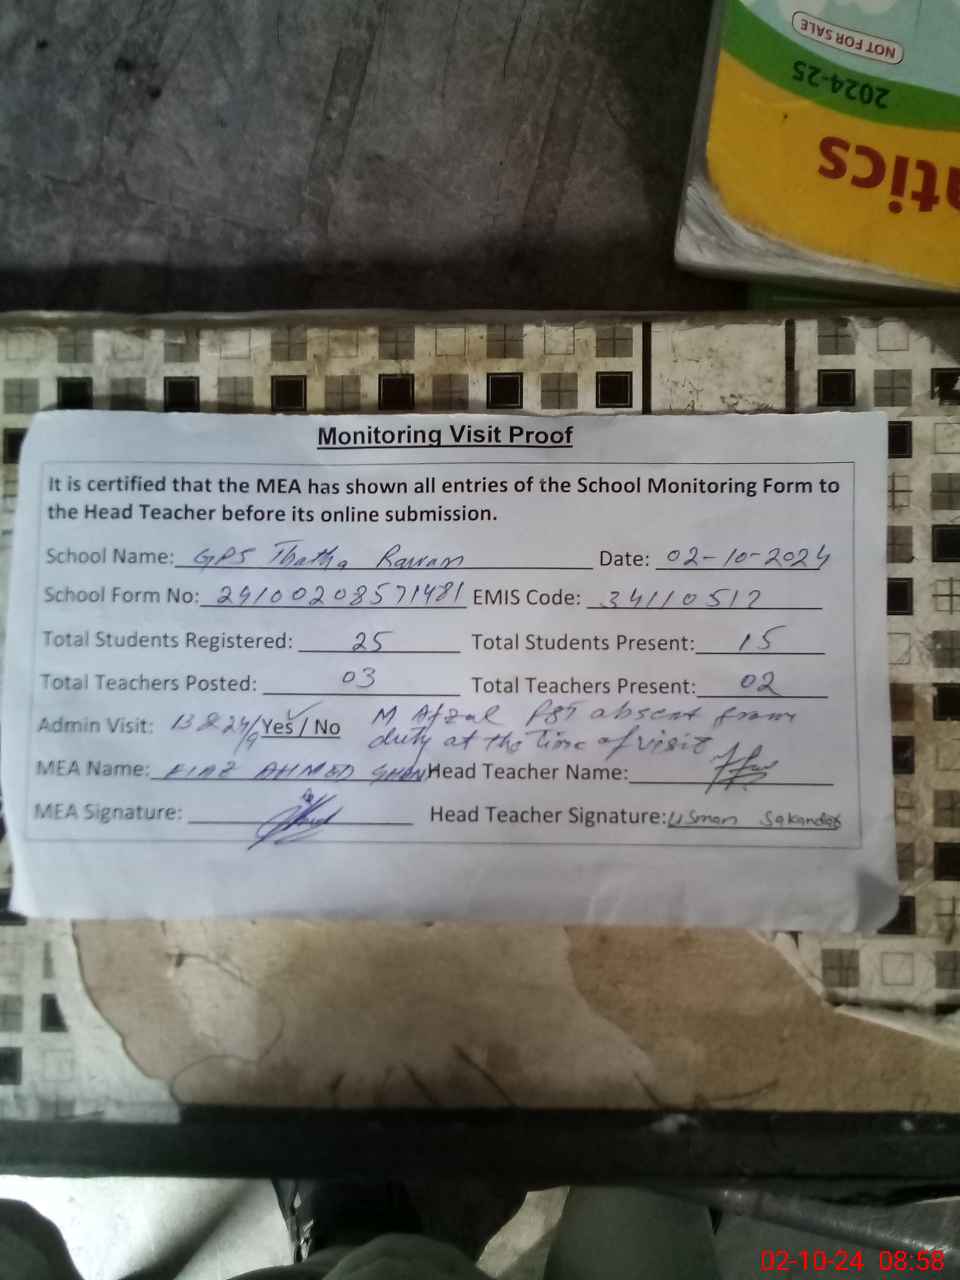 NOT FOR SALE
2024-25
atics
Monitoring Visit Proof
It is certified that the MEA has shown all entries of the School Monitoring Form to
the Head Teacher before its online submission.
School Name: GPS Thatha Rawan Date: 02-10-2024
School Form No: 24100208571481 EMIS Code: 34110517
Total Students Registered: 25 Total Students Present: 15
Total Teachers Posted: 03 Total Teachers Present: 02
Admin Visit: Yes / No M Afzal PST absent from
duty at the time of visit
MEA Name: FIAZ AHMED Head Teacher Name:
MEA Signature: Head Teacher Signature: Usman Sakandar
02-10-24 08:58